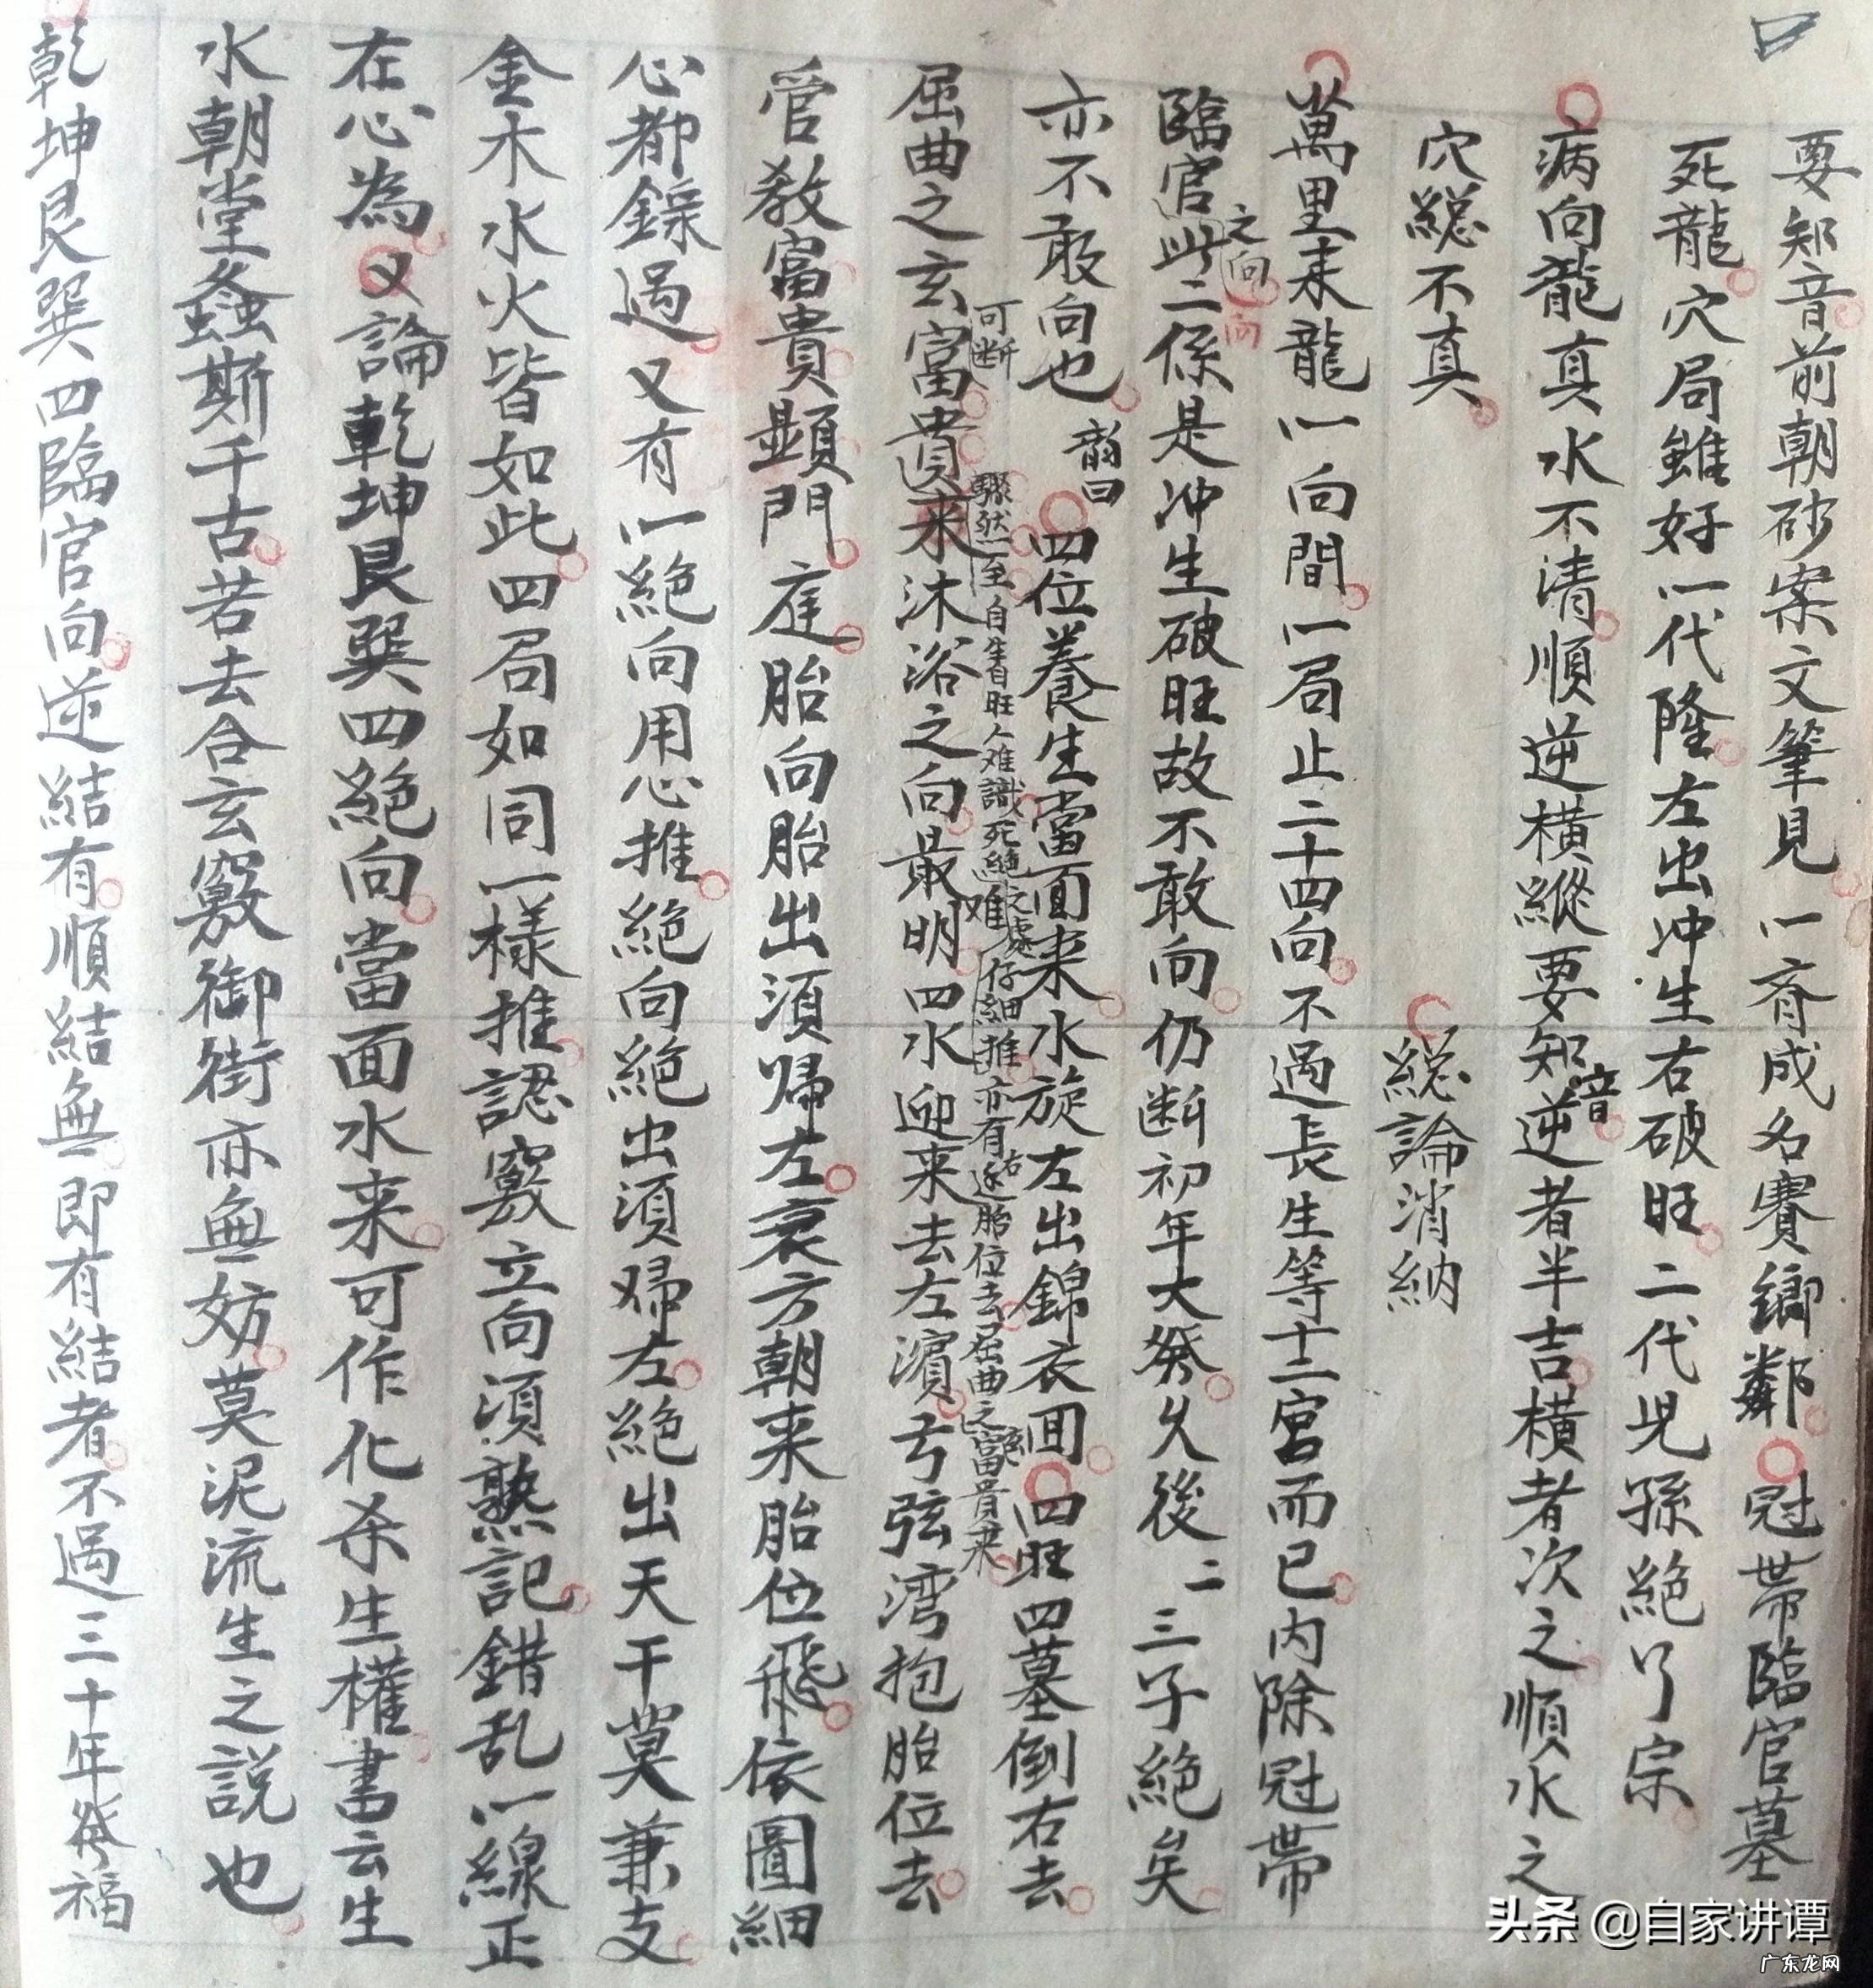 要知音前朝砂案文筆見一齊成名賽鄉鄰冠帶臨官墓
死龍穴局雖好一代隆左出冲生右破旺二代児孫絕了宗
病向龍真水不清順逆橫縱要知音逆者半吉橫者次之順水之
穴総不真
総論消納
萬里来龍一向間一局止二十四向不過長生等十二宮而已内除冠帶
臨官之向此二係是冲生破旺故不敢向仍断初年大発久後二三子絕矣
亦不敢向也
韻曰
四位養生當面来水旋左出錦衣囬四旺四墓倒右去
可断
驟然至自生自旺人难識死絕之處难仔細推亦有右逆胎位去屈曲之玄富貴来
屈曲之玄富貴来沐浴之向最明四水迎来去左濵弓弦湾抱胎位去
管教富貴顕門庭胎向胎出須帰左衰方朝来胎位飛依圖細
心都錄過又有一絕向用心推絕向絕出須帰左絕出天干莫兼支
金木水火皆如此四局如同一樣推認竅立向須熟記錯乱一線正
在心為又論乾坤艮巽四絕向當面水来可作化杀生權書云生
水朝堂螽斯千古若去合玄竅御街亦無妨莫泥流生之説也
乾坤艮巽四臨官向逆結有順結無即有結者不過三十年発福
头条 @自家讲谭
广东龙网